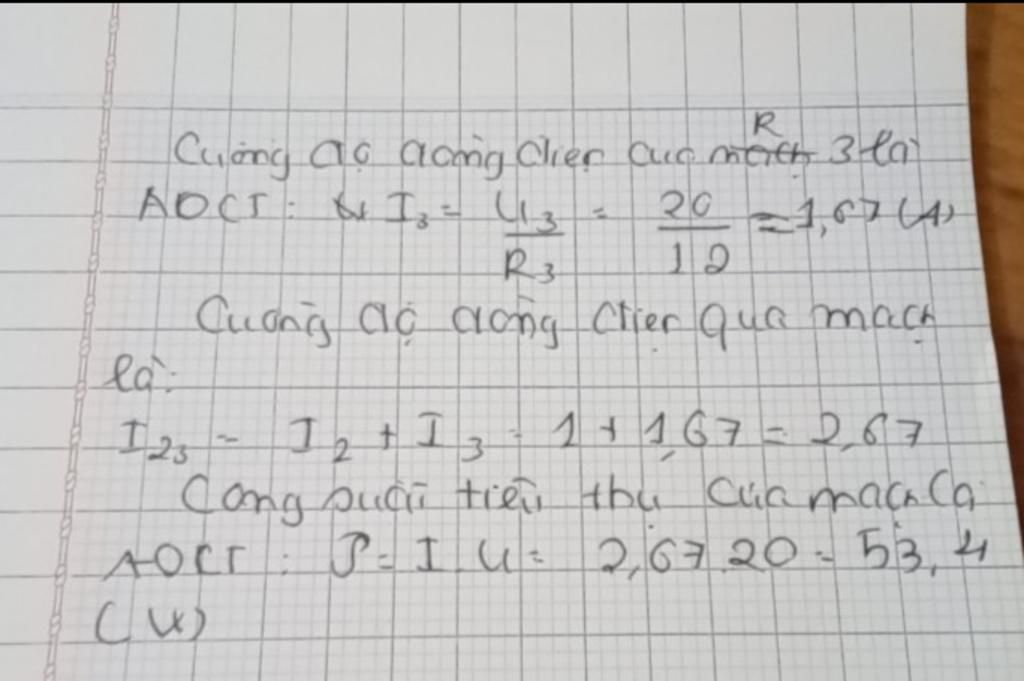 Cường độ dòng điện của R 3 là
ADCT: I₃ = U₃/R₃ = 20/12 = 1,67 (A)
Cường độ dòng điện qua mạch
là:
I₂₃ = I₂ + I₃ = 1 + 1,67 = 2,67
Công suất tiêu thụ của mạch là
ADCT: P = I.U = 2,67.20 = 53,4
(W)